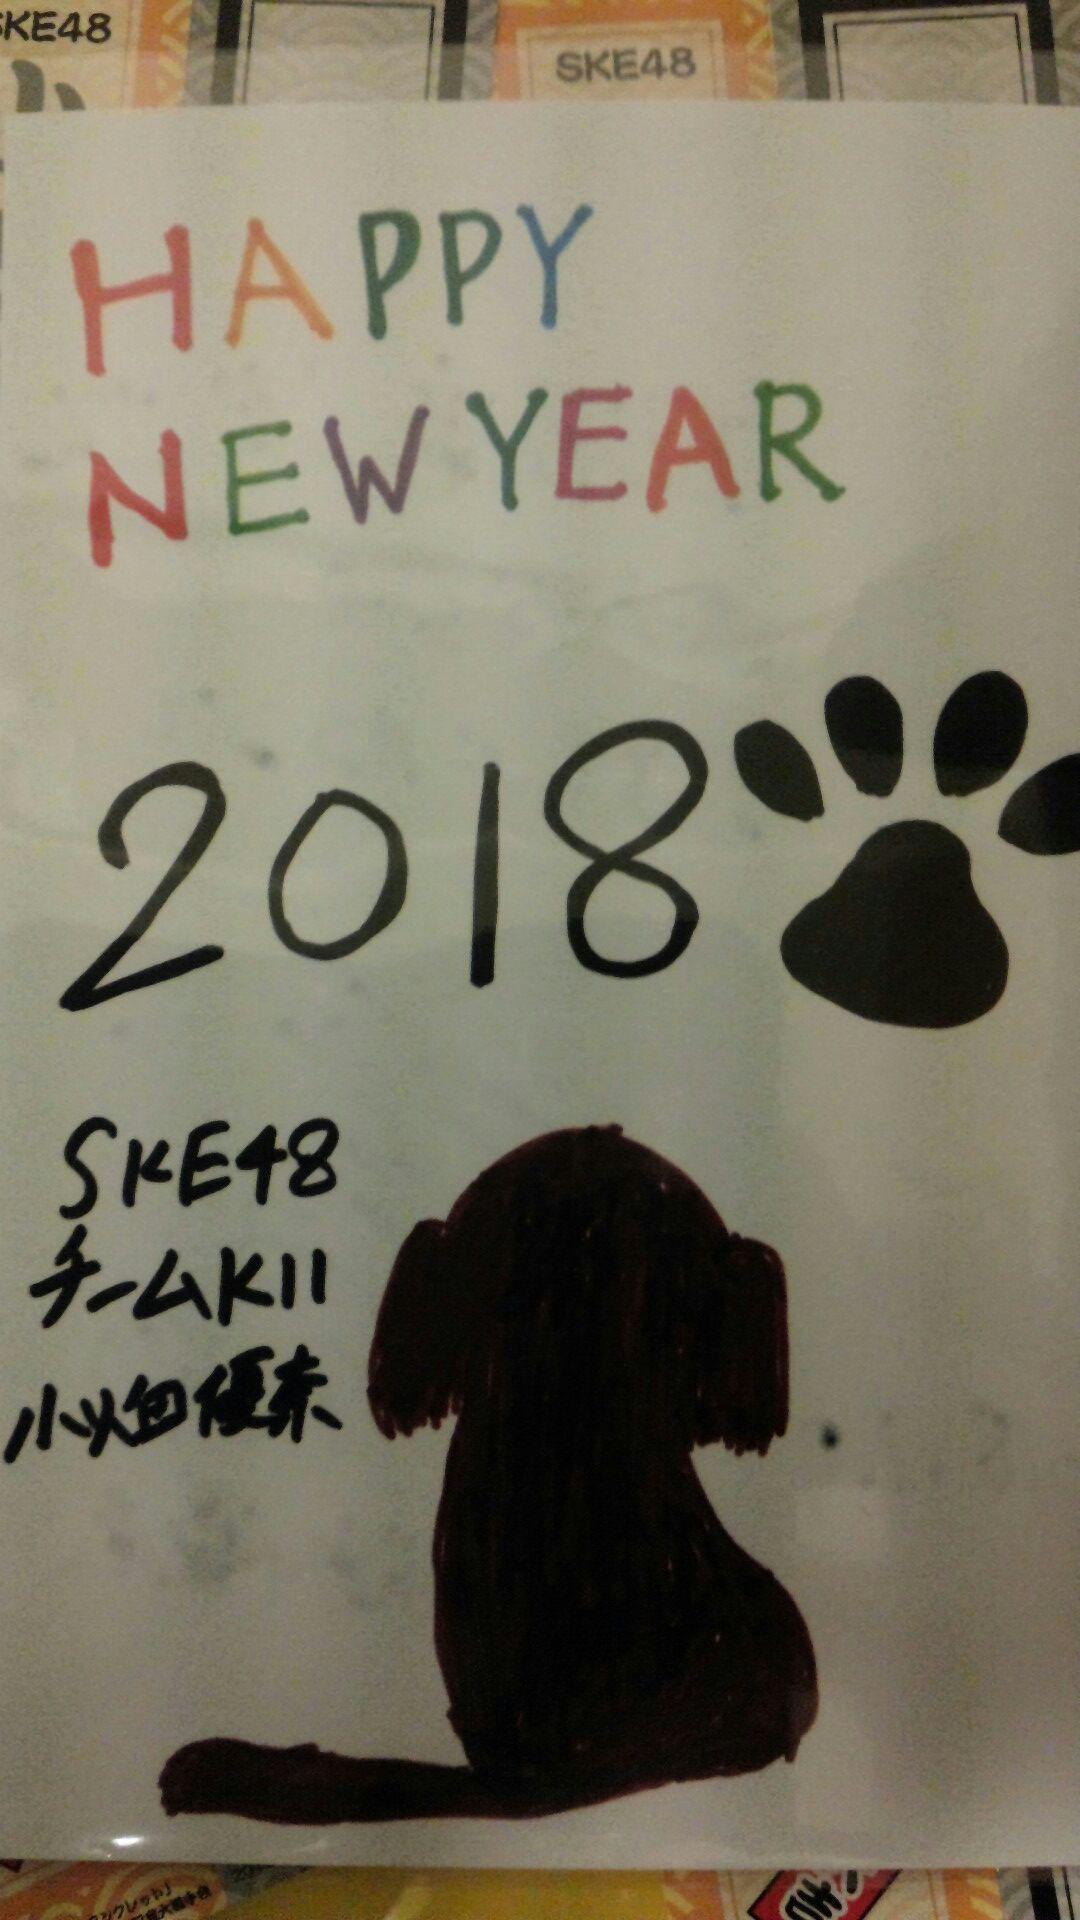 SKE48
SKE48
HAPPY
NEW YEAR
2018
SKE48
チームKII
小畑優奈